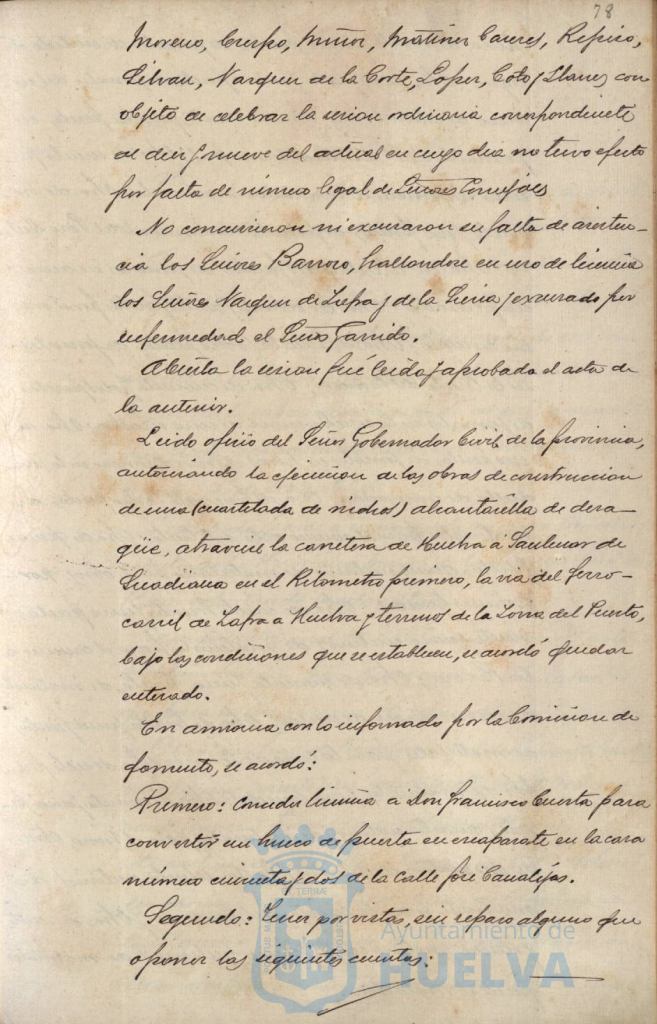 78
Moreno, Crespo, Muñoz, Martinez Caceres, Repiso,
Silvan, Vazquez de la Corte, Lopez, Coto y Llanes con
objeto de celebrar la sesion ordinaria correspondiente
al diez y nueve del actual en cuyo dia no tuvo efecto
por falta de número legal de Señores Concejales
No concurrieron ni excusaron su falta de asisten-
cia los Señores Barroso, hallandose en uso de licencia
los Señores Vazquez de Zafra y de la Seria y excusado por
enfermedad el Señor Garrido.
Abierta la sesion fué leida y aprobada el acta de
la anterior.
Leido oficio del Señor Gobernador Civil de la provincia,
autorizando la ejecucion de las obras de construccion
de una (cuartelada de nichos) alcantarilla de desa-
güe, atraviese la carretera de Huelva á Sanlucar de
Guadiana en el Kilometro primero, la via del ferro-
carril de Zafra a Huelva y terrenos de la Zona del Puerto,
bajo las condiciones que se establecen, se acordó quedar
enterado.
En armonia con lo informado por la Comision de
fomento, se acordó:
Primero: Conceder licencia á Don Francisco Cuesta para
convertir un hueco de puerta en escaparate en la casa
número cincuenta y dos de la Calle José Canalejas.
Segundo: Tener por vistas, sin reparo alguno que
oponer las siguientes cuentas:
Ayuntamiento de
HUELVA